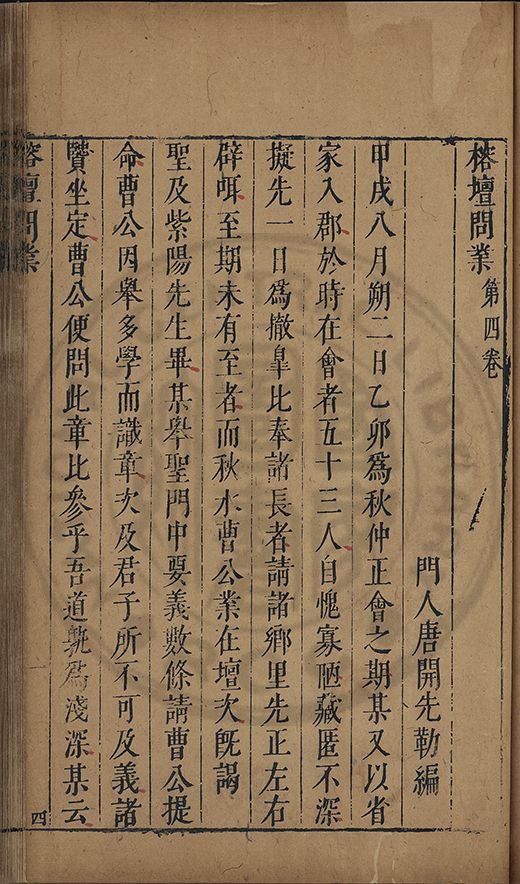 榕壇問業 第四卷
門人唐開先勒編
甲戌八月朔二日乙卯爲秋仲正會之期某又以省
家入郡於時在會者五十三人自愧寡陋藏匿不深
擬先一日爲撤臯比奉諸長者請諸鄉里先正左右
辟咡至期未有至者而秋水曹公業在壇次旣謁
聖及紫陽先生畢某舉聖門中要義數條請曹公提
命曹公因舉多學而識章次及君子所不可及義諸
賢坐定曹公便問此章比參乎吾道孰爲淺深某云
榕壇問業
四
一